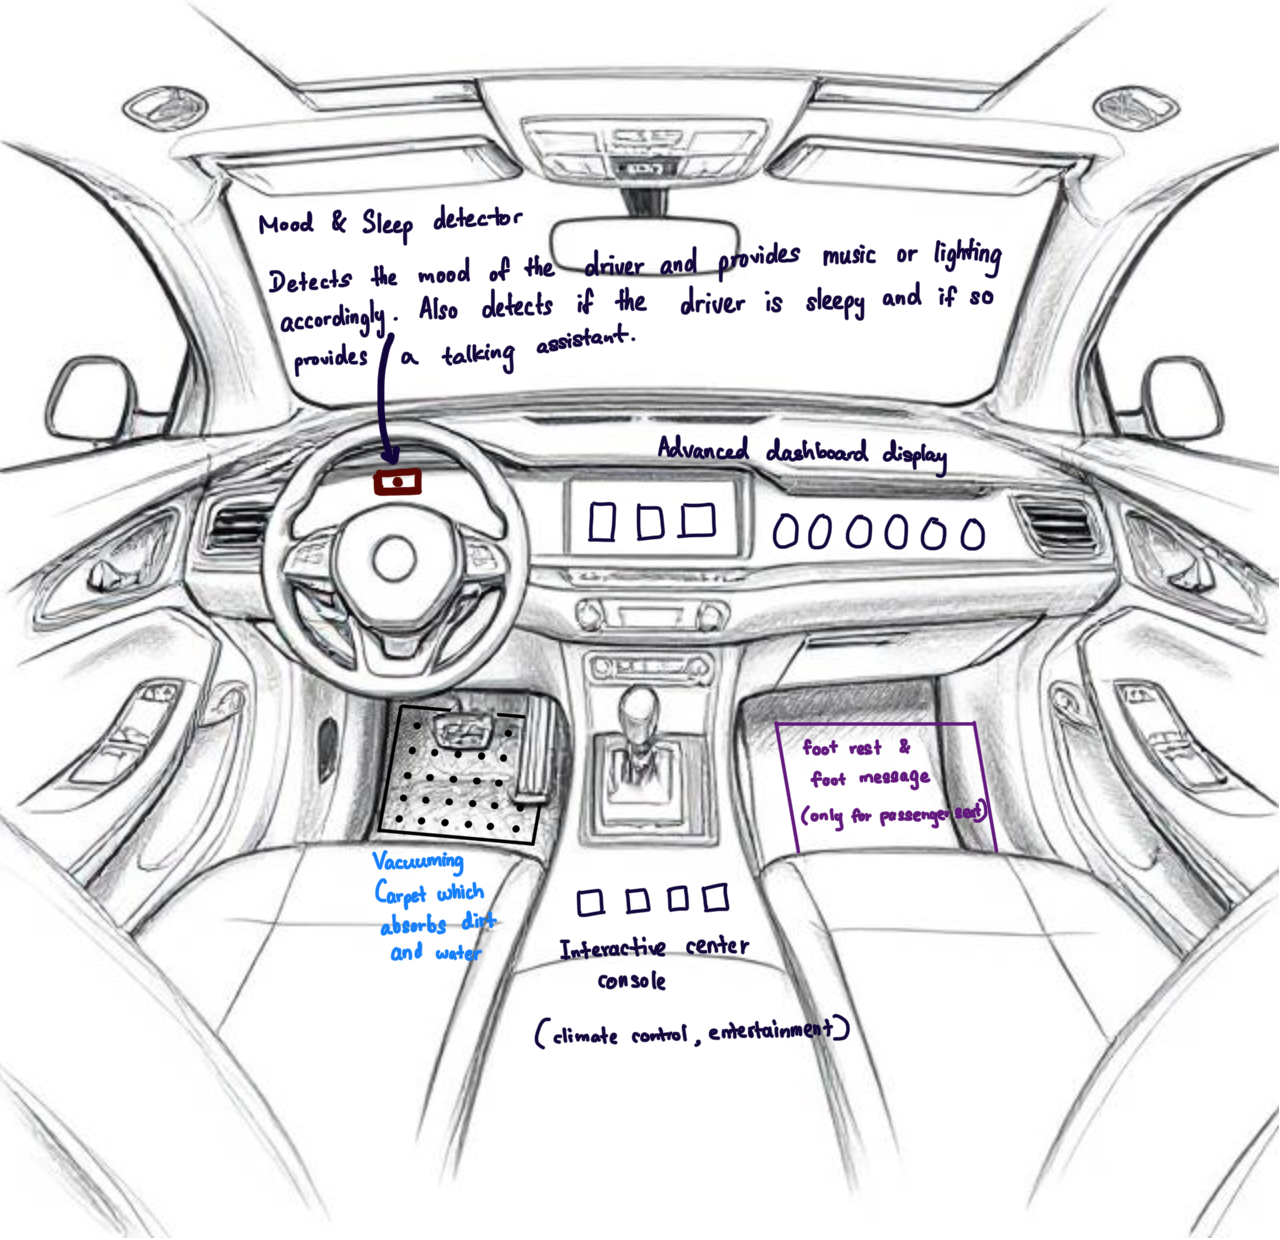 Mood & Sleep detector
Detects the mood of the driver and provides music or lighting
accordingly. Also detects if the driver is sleepy and if so
provides a talking assistant.
Advanced dashboard display
foot rest &
foot message
(only for passenger seat)
Vacuuming
Carpet which
absorbs dirt
and water
Interactive center
console
(climate control, entertainment)